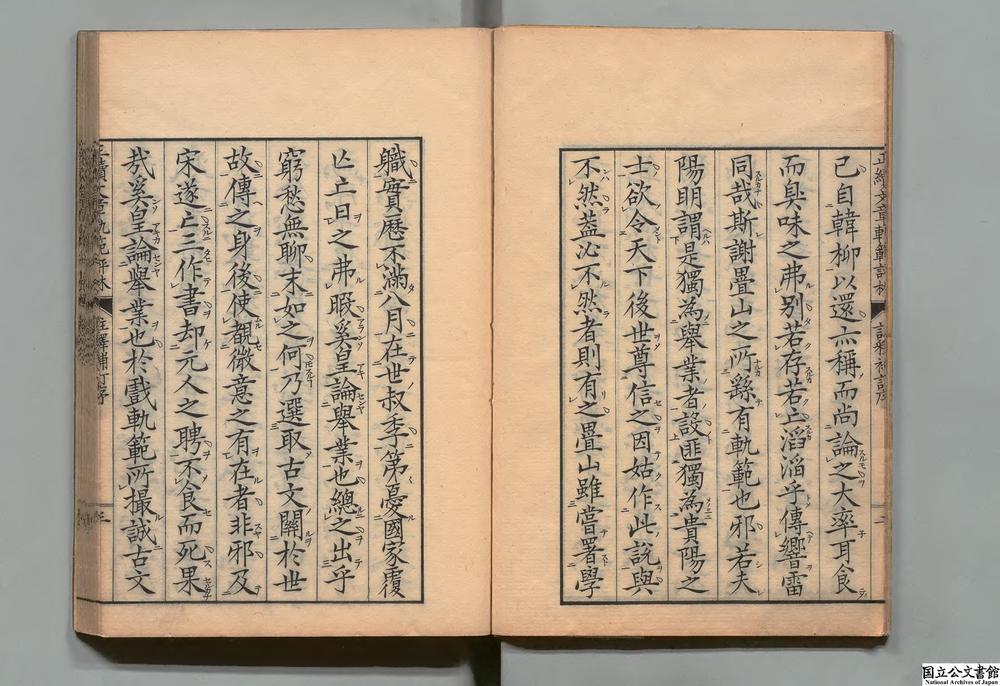 已自韓柳以還亦稱而尚論之大率耳食
而臭味之弗別若存若亡滔滔乎傳響雷
同哉斯謝疊山之所繇有軌範也邪若夫
陽明謂是獨為舉業者設匪獨為貴陽之
士欲令天下後世尊信之因姑作此說與
不然蓋必不然者則有之疊山雖嘗署學
職實歷不滿八月在世叔季第憂國家覆
亡亡日之弗暇奚皇論舉業也總之出乎
窮愁無聊末如之何乃選取古文關於世
故傳之身後使觀微意之有在者非邪及
宋遂亡三作書却元人之聘不食而死果
哉奚皇論舉業也於戲軌範所撮誠古文
正續文章軌範評林
註釋補訂序
二
正續文章軌範評林
註釋補訂序
三
国立公文書館
National Archives of Japan